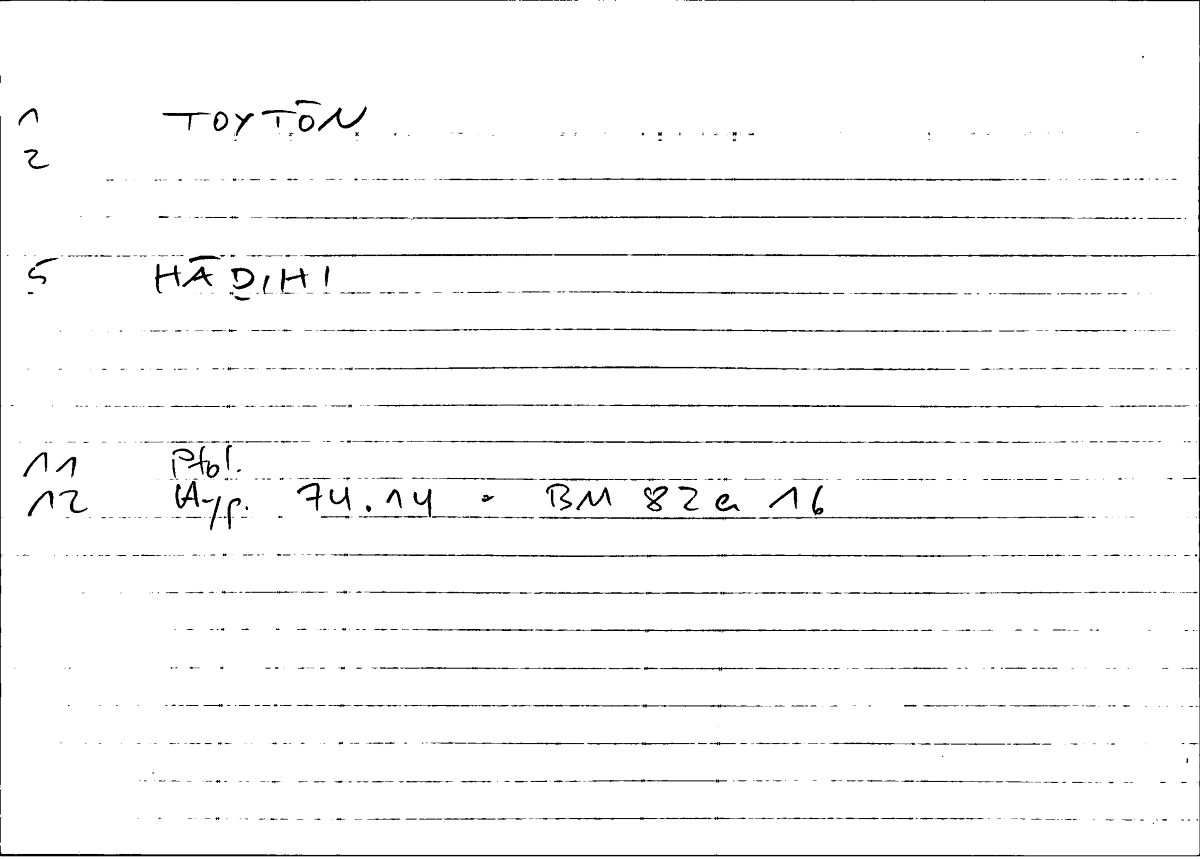 1 TOYTŌN
2
5 HĀḎIHI
11 Ptol.
12 74.14 = BM 82a 16